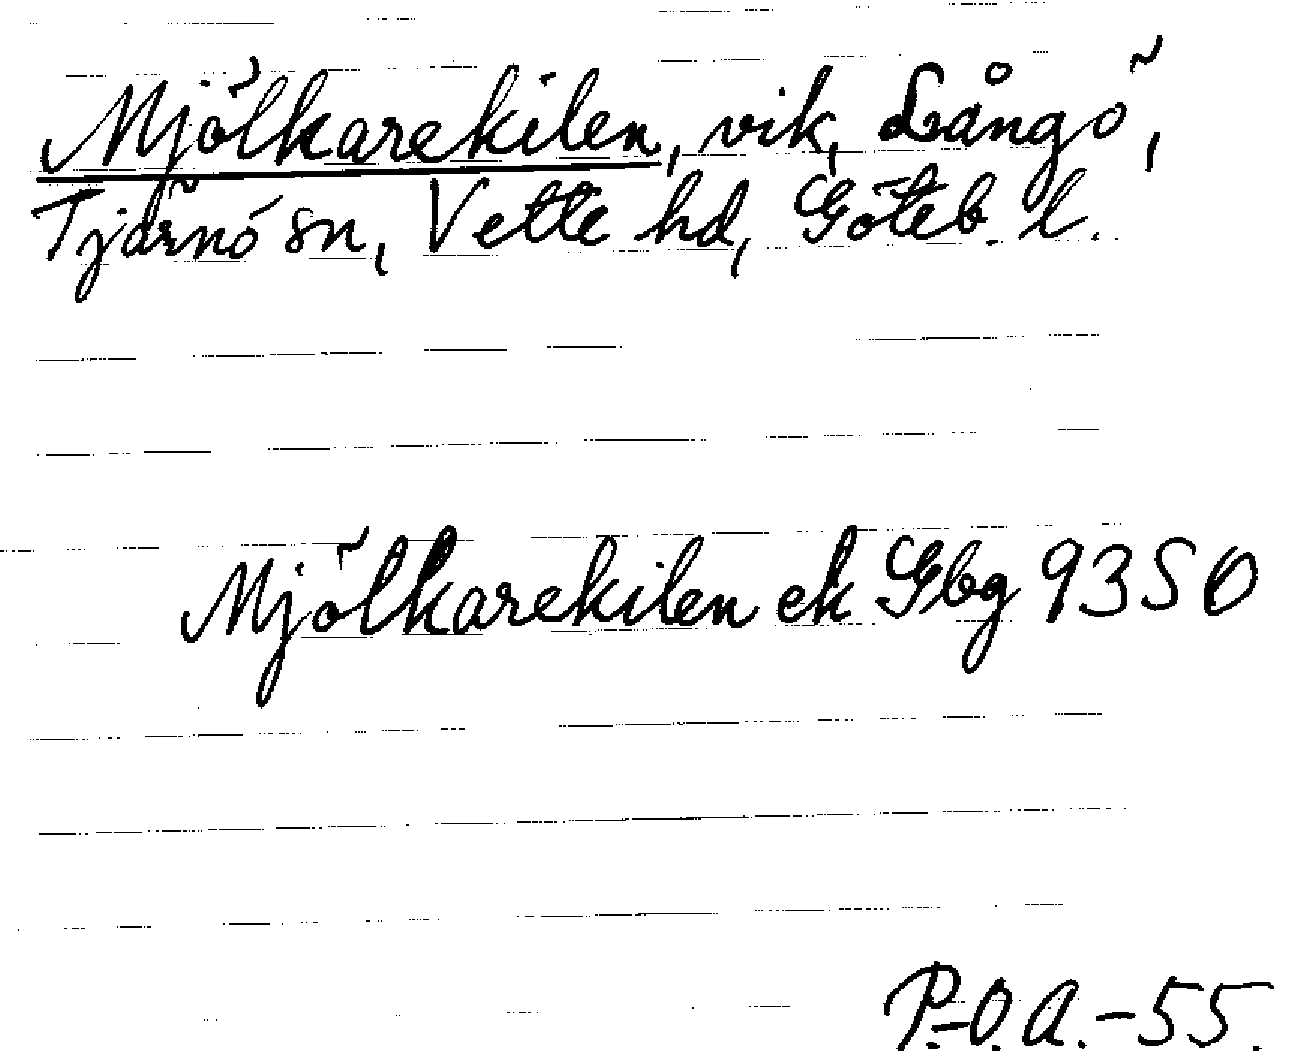 Mjölkarekilen, vik, Långö,
Tjärnö sn, Vette hd, Göteb. l.
Mjölkarekilen ek Gbg 9350
P.-O.A.-55.